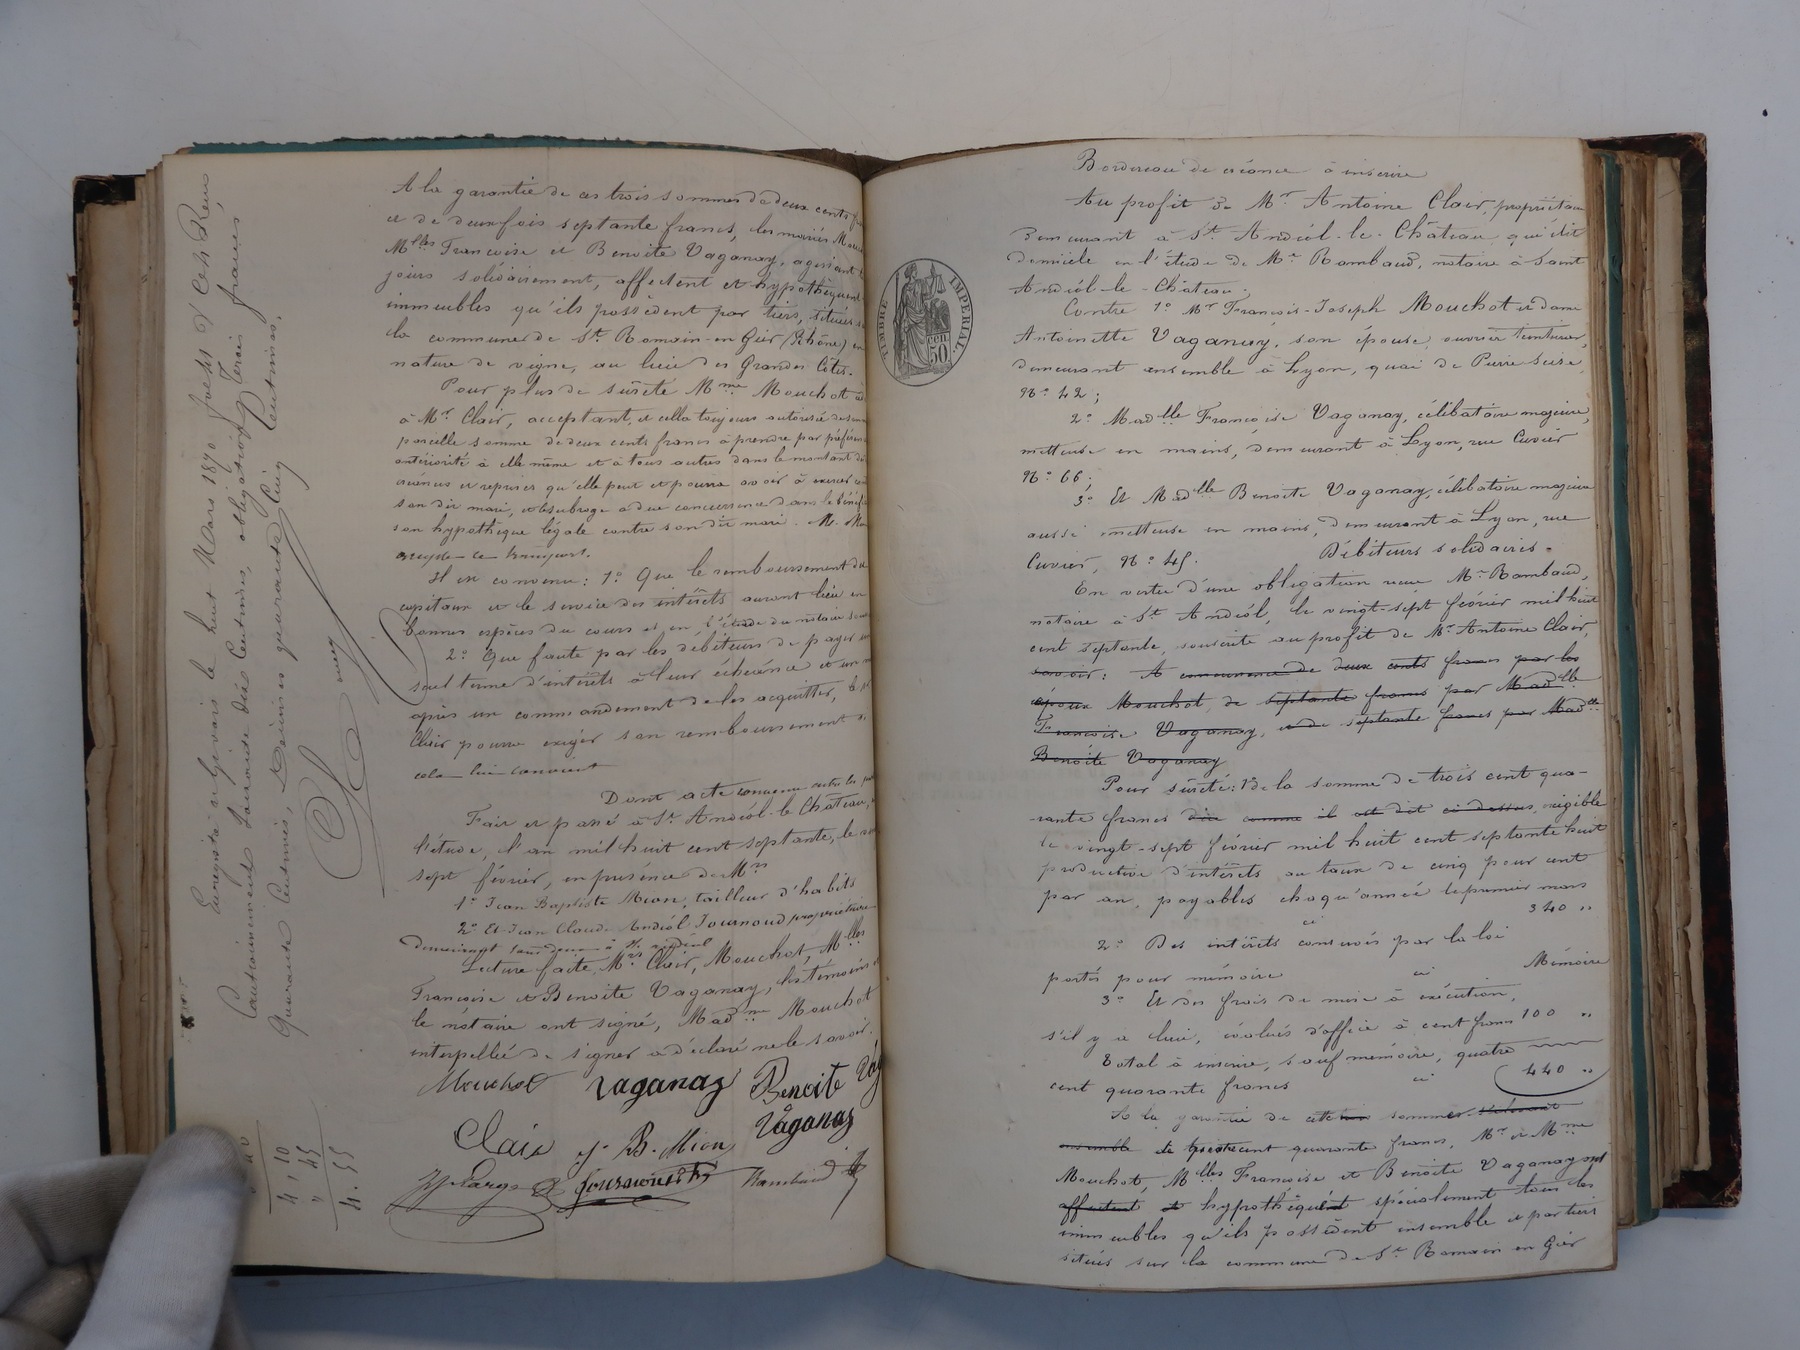 A la garantie de ces trois sommes de deux cents
et de deux fois septante francs, les mariés
Mlles Françoise et Benoite Vaganay, agissant
jours solidairement, affectent et hypothèquent
immeubles qu'ils possèdent par tiers, situés
la commune de St Romain-en Gier (Rhône) en
nature de vigne, au lieu des Grandes Côtes.
Pour plus de sûreté Mme Mouchot
à Mr Clair, acceptant, et celle toujours autorisée
pareille somme de deux cents francs à prendre par préférence
antériorité à elle même et à tous autres dans le montant
créances et reprises qu'elle peut et pourra avoir à exercer
son dit mari, et le subroge à due concurrence dans le bénéfice
son hypothèque légale contre son dit mari. Mr
accepte ce transport.
Il est convenu : 1° Que le remboursement
capitaux et le service des intérêts auront lieu en
bonnes espèces du cours et en l'étude du notaire
2° Que faute par les débiteurs de payer
seul terme d'intérêts à leur échéance et un
après un commandement de les acquitter, le
Clair pourra exiger son remboursement si
cela lui convient
Dont acte
Fait et passé à St Andéol-le Château,
l'étude, l'an mil huit cent septante, le
sept février, en présence de Mrs
1° Jean Baptiste Mion, tailleur d'habits
2° Et Jean Claude Andéol Journoud propriétaire
demeurant tous deux à St Andéol
Lecture faite, Mrs Clair, Mouchot, Mlles
Françoise et Benoite Vaganay, les témoins et
le notaire ont signé, Madme Mouchot
interpellée de signer a déclaré ne le savoir.
Mouchot Vaganay Benoite
Vaganay
Clair J. B. Mion
Rambaud
Enregistré à Givors le huit Mars 1870 folio
Cautionnement soixante dix Centimes, obligation Trois francs,
Quarante Centimes, Décimes quarante Cinq Centimes.
4, 10
" 45
4. 55
TIMBRE IMPERIAL.
50 cen
Bordereau de créance à inscrire
Au profit de Mr Antoine Clair, propriétaire
demeurant à St Andéol-le-Château qui élit
domicile en l'étude de Mr Rambaud, notaire à Saint
Andéol-le-Château.
Contre 1° Mr François-Joseph Mouchot et dame
Antoinette Vaganay, son épouse, ouvrier teinturier,
demeurant ensemble à Lyon, quai de Pierre Scise,
N° 42 ;
2° Madlle Françoise Vaganay, célibataire majeure,
metteuse en mains, demeurant à Lyon, rue Cuvier
N° 66 ;
3° Et Madlle Benoite Vaganay, célibataire majeure
aussi metteuse en mains, demeurant à Lyon, rue
Cuvier, N° 45. Débiteurs solidaires.
En vertu d'une obligation reçue Mr Rambaud,
notaire à St Andéol, le vingt-sept février mil huit
cent septante, souscrite au profit de Mr Antoine Clair,
savoir : A concurrence de deux cents francs par les
époux Mouchot, de septante francs par Madlle
Françoise Vaganay, et de septante francs par Madlle
Benoite Vaganay
Pour sûreté : 1° de la somme de trois cent qua-
rante francs due comme il est dit ci-dessus, exigible
le vingt-sept février mil huit cent septante huit
productive d'intérêts au taux de cinq pour cent
par an, payables chaqu'année le premier mars
ci 340 "
2° Des intérêts conservés par la loi
portés pour mémoire ci Mémoire
3° Et des frais de mise à exécution,
s'il y a lieu, évalués d'office à cent francs 100 "
Total à inscrire, sauf mémoire, quatre
cent quarante francs ci 440 "
A la garantie de cette somme
ensemble de trois cent quarante francs, Mr et Mme
Mouchot, Mlles Françoise et Benoite Vaganay ont
affectent et hypothéqué spécialement tous les
immeubles qu'ils possèdent ensemble et par tiers
situés sur la commune de St Romain en Gier